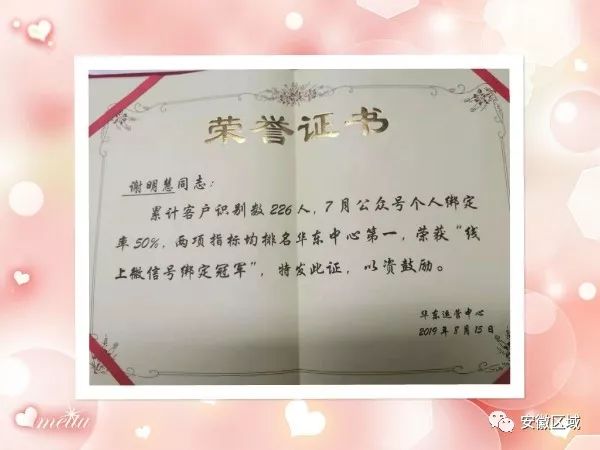 荣誉证书
谢明慧同志：
累计客户识别数226人，7月公众号个人绑定
率50%，两项指标均排名华东中心第一，荣获“线
上微信号绑定冠军”，特发此证，以资鼓励。
华东运营中心
2019年8月15日
metta
安徽区域